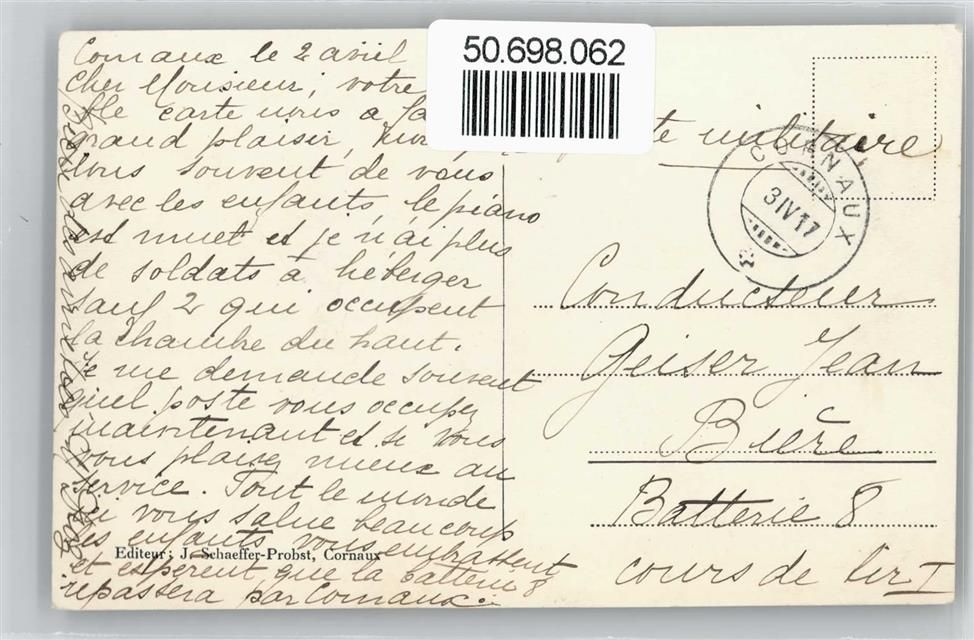 50.698.062
Cornaux le 2 avril
Cher Monsieur, votre
carte nous a fa
grand plaisir,
nous souvent de vous
avec les enfants, le piano
est muet et je n'ai plus
de soldats à héberger
sauf 2 qui occupent
la chambre du haut.
Je me demande souvent
quel poste vous occupez
maintenant et si vous
vous plaisez mieux au
service. Tout le monde
ici vous salue beaucoup
les enfants vous embrassent
et espèrent que la batterie 8
repassera par Cornaux.
Editeur: J. Schaeffer-Probst, Cornaux
te militaire
CORNAUX
3 IV 17
Conducteur
Geiser Jean
Bière
Batterie 8
cours de tir I